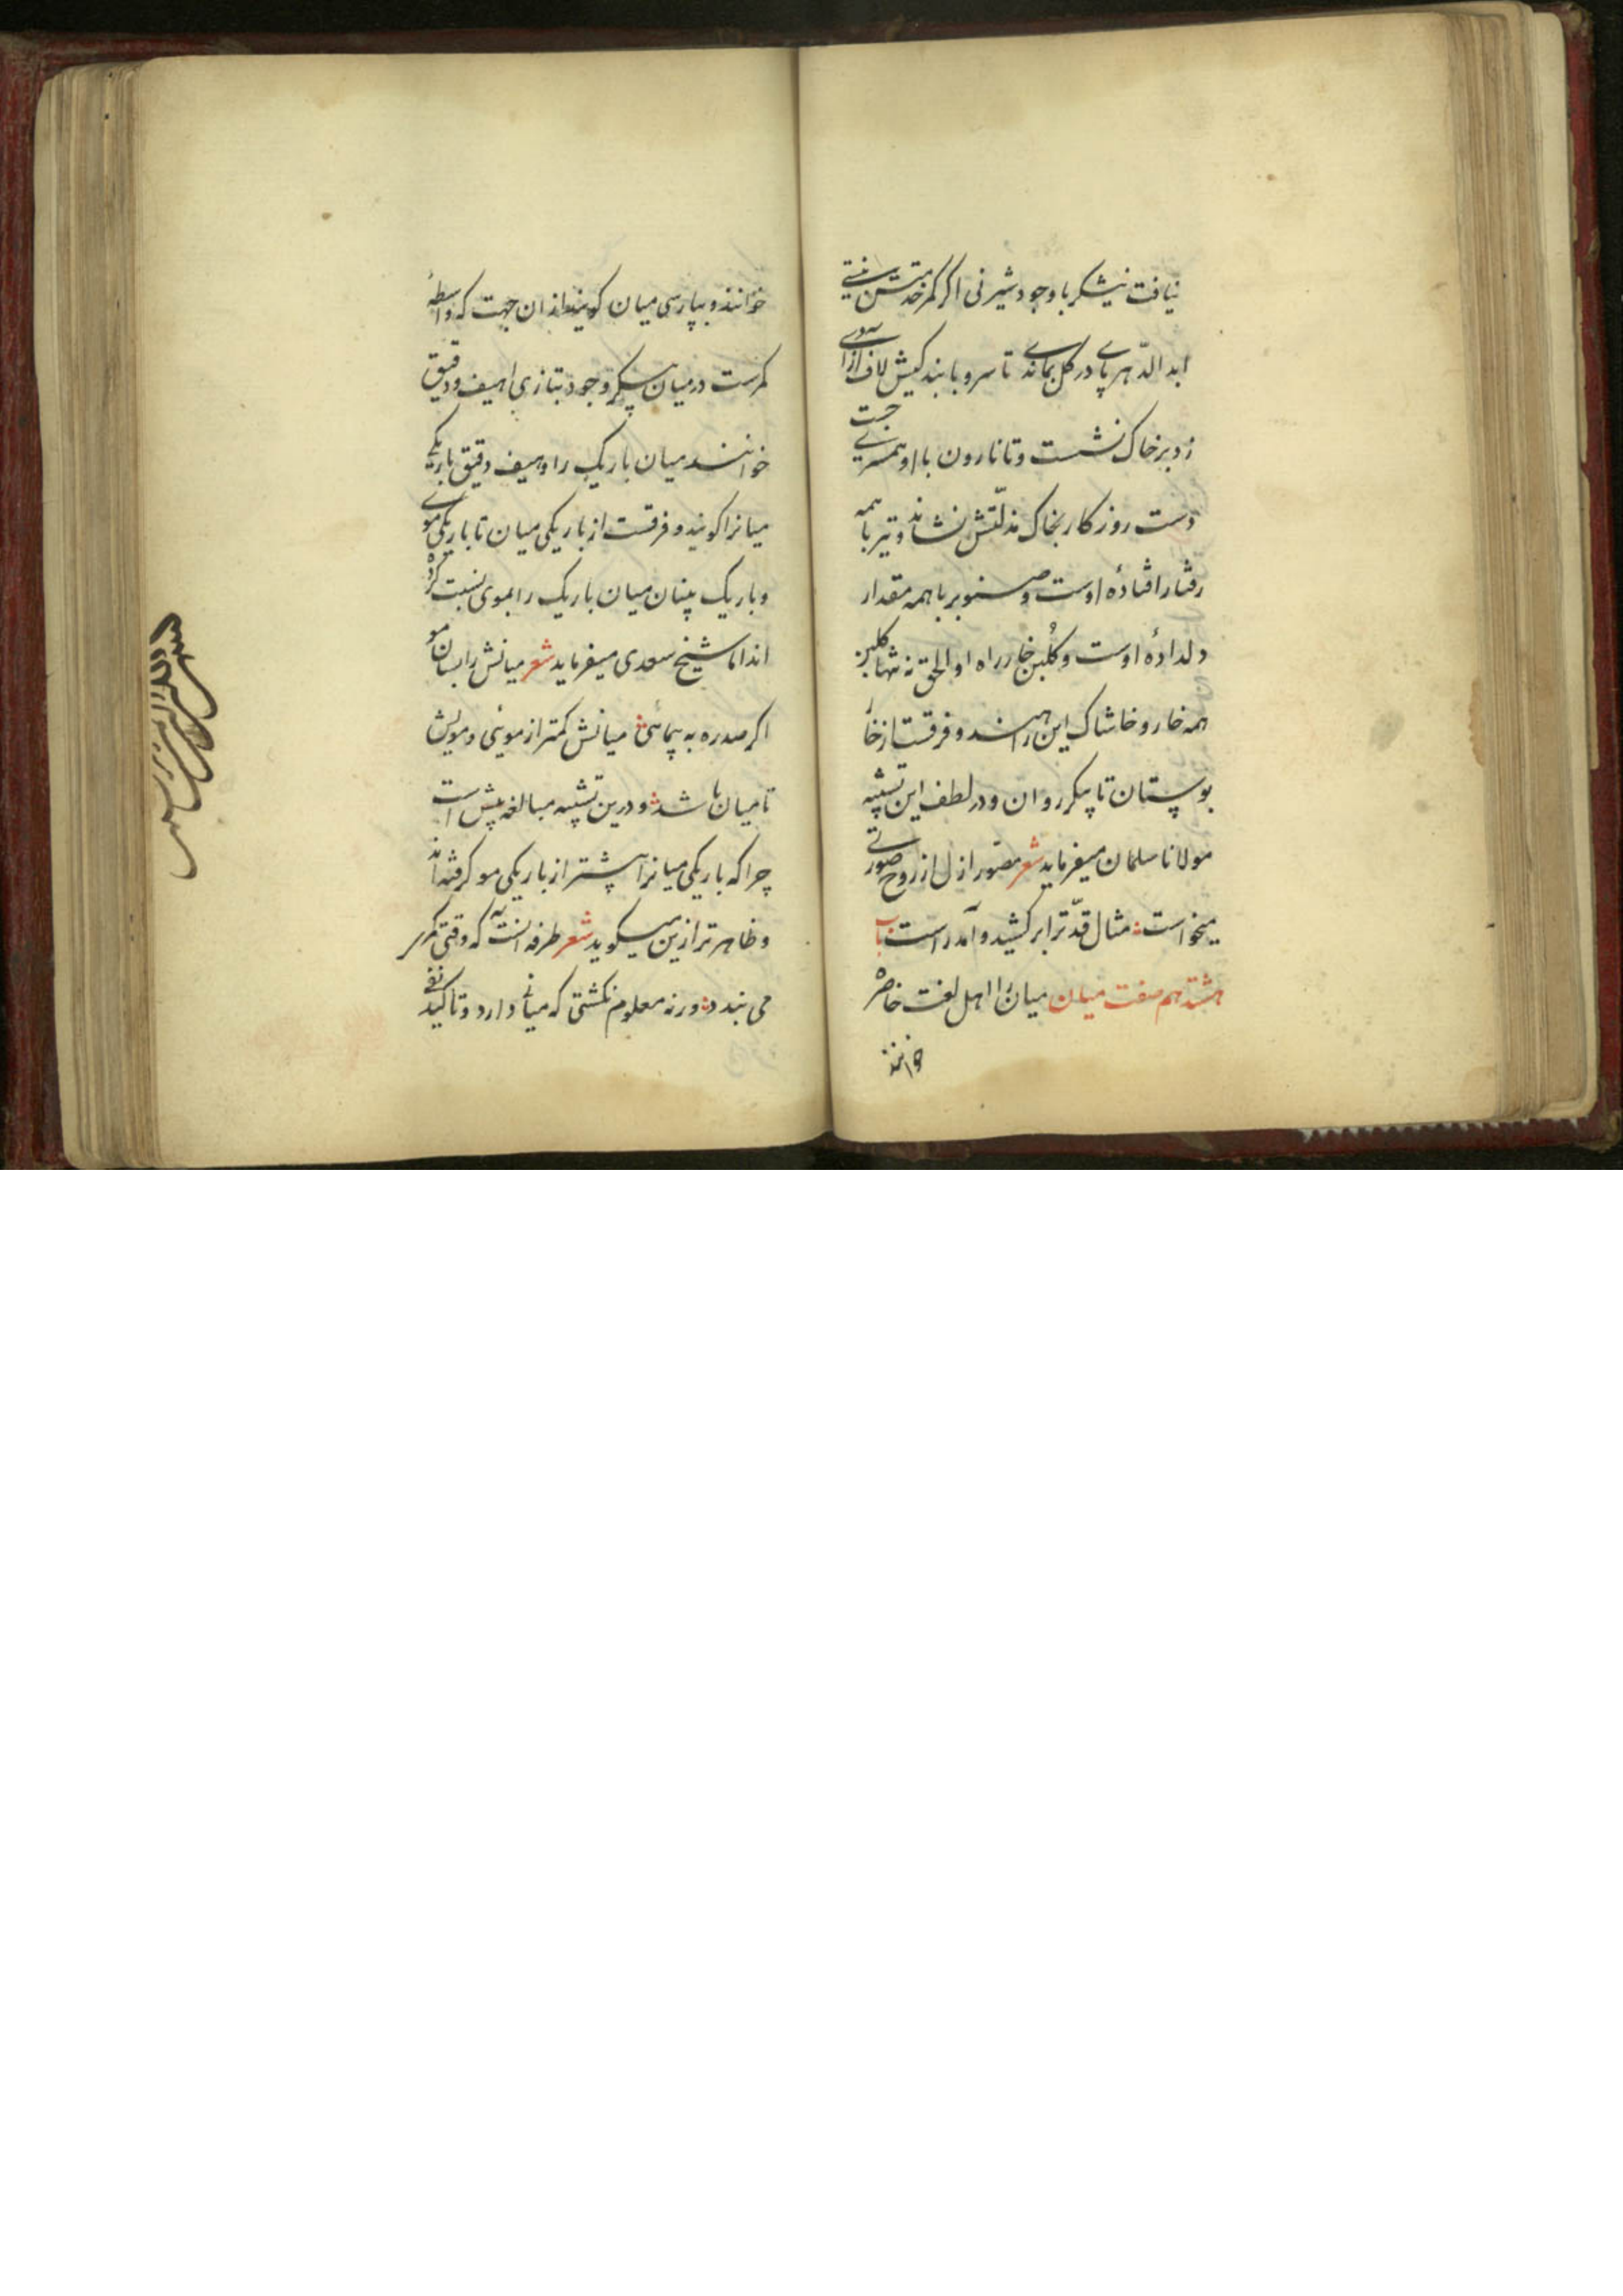 نیافت نیشکر با وجود شیرنی اگر کمر خدمتش نبستی
ابد الدّهر پای در گل بماندی تا سرو با بندگیش لاف آزادی
زد بر خاک نشست و تا نارون با او همسری جست
دست روزگار بخاک مذلّتش نشاند و تیر با همه
رفتار افتادهٔ اوست و صنوبر با همه مقدار
دلدادهٔ اوست و گُلبن خار راه او الحق نه تنها گلبن
همه خار و خاشاک این راهند و فرقست از خا
بوستان تا پیکر روان و در لطف این تشبیه
مولانا سلمان میفرماید شعر مصور ازل از روح صورتی
میخواست مثال قدّ ترا بر کشید و آمد راست باب
هشتدهم صفت میان میان را اهل لغت خاصره
خوانند
خوانند و بپارسی میان گویند از ان جهت که واسطهٔ
کمرست در میان پیکر وجود بتازی اهیف و دقیق
خوانند میان باریک را و هیف و دقیق باریکی
میانرا گویند و فرقست از باریکی میان تا باریکی موی
و باریک بینان میان باریک را بموی نسبت کرده
اند اما شیخ سعدی میفرماید شعر میانش را بسان مو
اگر صد ره به پیمائی میانش کمتر از موئی و مویش
تا میان باشد و درین تشبیه مبالغه بیش است
چرا که باریکی میانرا بیشتر از باریکی مو گرفته اند
و ظاهرتر ازین میگوید شعر طرفه آنست که وقتی کمر
می بندد ورنه معلوم نگشتی که میانی دارد و تاکید نفی